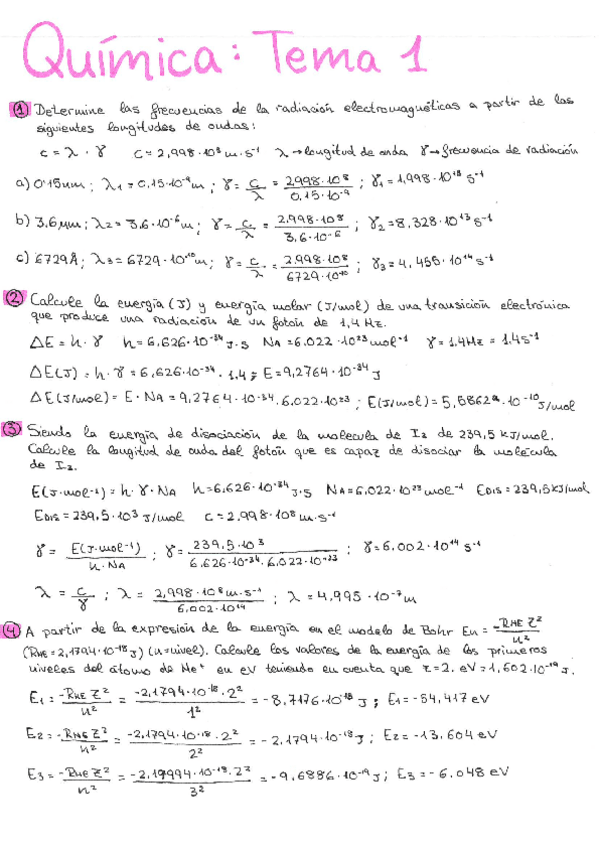 Química: Tema 1
① Determine las frecuencias de la radiación electromagnéticas a partir de las
siguientes longitudes de ondas:
c = λ · γ   c = 2,998·10⁸ m·s⁻¹   λ → longitud de onda   γ → frecuencia de radiación
a) 0'15nm; λ₁ = 0,15·10⁻⁹m; γ = c/λ = 2998·10⁸/0,15·10⁻⁹; γ₁ = 1,998·10¹⁸ s⁻¹
b) 3,6μm; λ₂ = 3,6·10⁻⁶m; γ = c/λ = 2,998·10⁸/3,6·10⁻⁶; γ₂ = 8,328·10¹³ s⁻¹
c) 6729Å; λ₃ = 6729·10⁻¹⁰m; γ = c/λ = 2,998·10⁸/6729·10¹⁰; γ₃ = 4,455·10¹⁴ s⁻¹
② Calcule la energía (J) y energía molar (J/mol) de una transición electrónica
que produce una radiación de un fotón de 1,4 Hz.
ΔE = h · γ   h = 6,626·10⁻³⁴ J·s   NA = 6,022·10²³ mol⁻¹   γ = 1,4Hz = 1,4s⁻¹
ΔE(J) = h · γ = 6,626·10⁻³⁴ · 1,4; E = 9,2764·10⁻³⁴ J
ΔE(J/mol) = E · NA = 9,2764·10⁻³⁴ · 6,022·10²³; E(J/mol) = 5,5862·10⁻¹⁰ J/mol
③ Siendo la energía de disociación de la molecula de I₂ de 239,5 kJ/mol.
Calcule la longitud de onda del fotón que es capaz de disociar la molécula
de I₂.
E(J·mol⁻¹) = h · γ · NA   h = 6,626·10⁻³⁴ J·s   NA = 6,022·10²³ mol⁻¹   EDIS = 239,5kJ/mol
EDIS = 239,5·10³ J/mol   c = 2,998·10⁸ m·s⁻¹
γ = E(J·mol⁻¹)/h·NA; γ = 239,5·10³/6,626·10⁻³⁴·6,022·10⁻²³; γ = 6,002·10¹⁴ s⁻¹
λ = c/γ; λ = 2,998·10⁸ m·s⁻¹/6,002·10¹⁴; λ = 4,995·10⁻⁷ m
④ A partir de la expresión de la energía en el modelo de Bohr En = -RHE Z²/n²
(RHE = 2,1794·10⁻¹⁸ J) (n = nivel). Calcule los valores de la energía de los primeros
niveles del átomo de He⁺ en eV teniendo en cuenta que z = 2. eV = 1,602·10⁻¹⁹ J.
E₁ = -RHE Z²/n² = -2,1794·10⁻¹⁸·2²/1² = -8,7176·10⁻¹⁸ J; E₁ = -54,417 eV
E₂ = -RHE Z²/n² = -2,1794·10⁻¹⁸·2²/2² = -2,1794·10⁻¹⁸ J; E₂ = -13,604 eV
E₃ = -RHE Z²/n² = -2,19994·10⁻¹⁸·2²/3² = -9,6886·10⁻¹⁹ J; E₃ = -6,048 eV